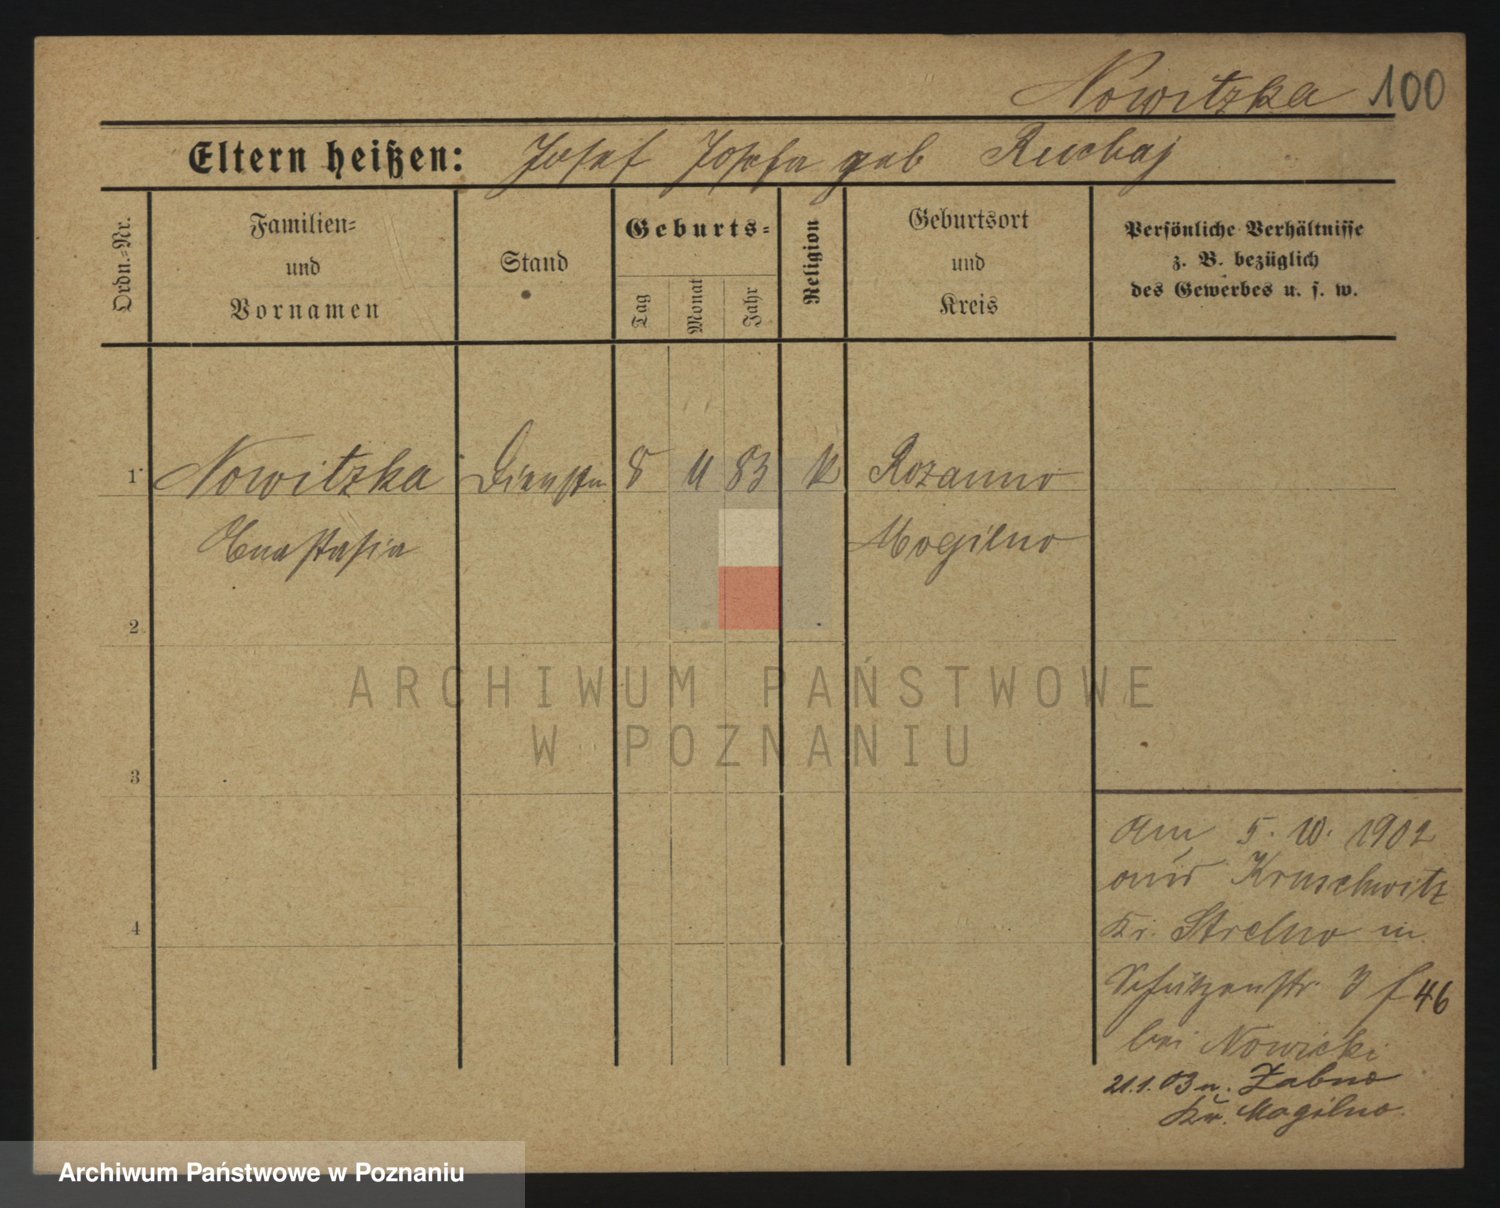 Nowitzka 100
Eltern heißen: Josef Josefa geb Ruchaj
Ordn.-Nr.
Familien-
und
Vornamen
Stand
Geburts-
Tag
Monat
Jahr
Religion
Geburtsort
und
Kreis
Persönliche Verhältnisse
z. B. bezüglich
des Gewerbes u. s. w.
1 Nowitzka Dienstm 8 11 83 K Rozanno
Anastasia Mogilno
2
3
4
Am 5. 10. 1902
aus Kruschwitz
Kr. Strelno in
Schützenstr. 46
bei Nowicki
21.1.03 n. Zabno
Kr. Mogilno.
ARCHIWUM PAŃSTWOWE
W POZNANIU
Archiwum Państwowe w Poznaniu